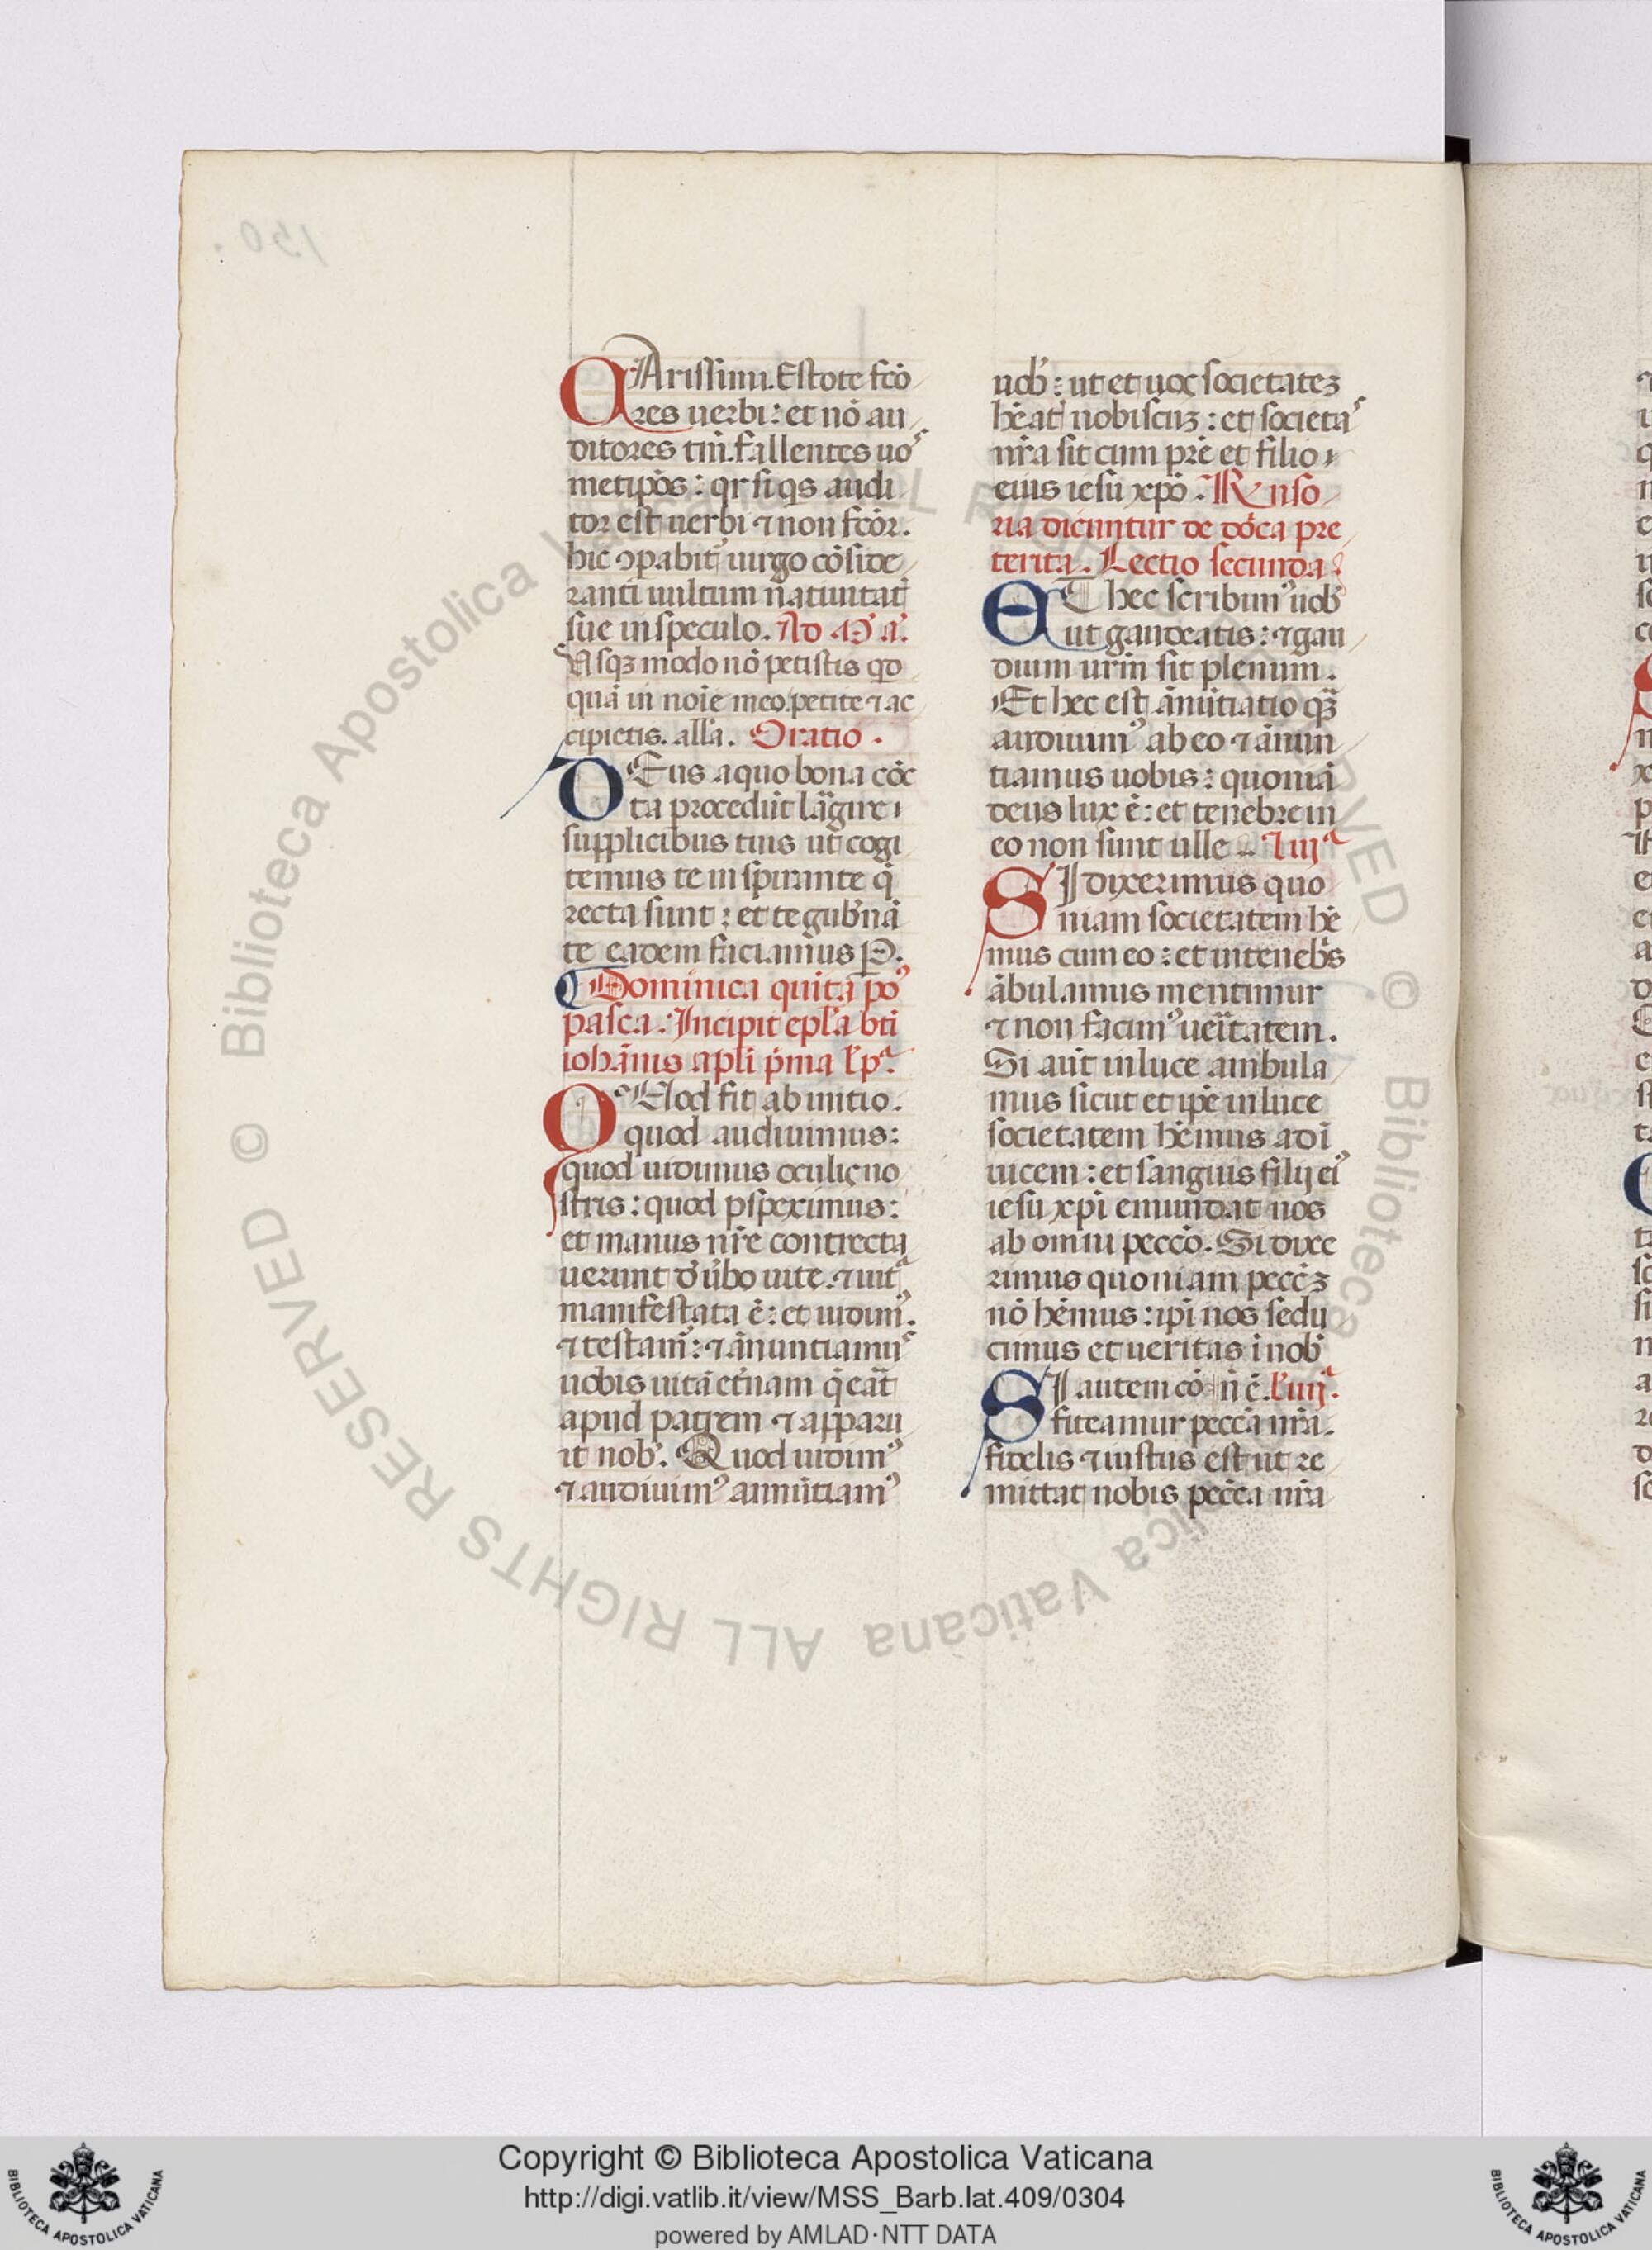 CArissimi. Estote fcō
res uerbi: et nō au
ditores tm̄. fallentes uo
metip̄os: qr si q̄s audi
tor est uerbi ⁊ non fcōr.
hic ↄpabit᷑ uirgo cōside
ranti uultum natiuitat᷑
sue in speculo. Ad
Usq̨ modo nō petistis qd̄
quā in noīe meo. petite ⁊ ac
cipietis. all̄a. Oratio.
DEus a quo bona cūc
ta procedūt lāgire
supplicibus tuis ut cogi
temus te inspirante q̄
recta sunt: et te gub̄nā
te eadem faciamus P.
Dominica quīta po᷒
pasca. Incipit ep̄la bt̄i
iohānis apl̄i p̄ma l̄ pª.
QUod fit ab initio.
quod audiuimus:
quod uidimus oculis no
stris: quod pspeximus:
et manus nr̄e contrecta
uerunt d̄ ūbo uite. ⁊ uitª
manifestata ē: et uidim᷒.
⁊ testam᷒: ⁊ ānuntiamu᷒
uobis uitā et̄nam q̄ eāt
apud patrem ⁊ apparu
it nob᷒. Quod uidim᷒
⁊ audiuim᷒ annūtiam᷒
uob᷒: ut et uos societateʒ
hēat᷑ nobiscuʒ: et societa᷒
nr̄a sit cum pr̄e et filio
eius iesu xpō. R nso
ria dicuntur de dōca pre
terita. Lectio secunda
ET hec scribim᷒ uob᷒
ut gaudeatis: ⁊ gau
dium ur̄m sit plenum.
Et hec est ānūtiatio qʒ̄
audiuim᷒ ab eo ⁊ ānun
tiamus uobis: quoniā
deus lux ē: et tenebre in
eo non sunt ulle. L iijª
SI dixerimus quo
niam societatem hē
mus cum eo: et in teneb̄s
ābulamus mentimur
⁊ non facim᷒ ueītatem.
Si aūt in luce ambula
mus sicut et ip̄e in luce
societatem hēmus ad ī
uicem: et sanguis filij ei᷒
iesu xpi emundat nos
ab omni peccō. Si dixe
rimus quoniam pecc̄ʒ
nō hēmus: ip̄i nos sedu
cimus et ueritas ī nob᷒
SI autem cō n̄ ē. L iiijª.
fiteamur pecc̄a nr̄a.
fidelis ⁊ iustus est ut re
mittat nobis pecc̄a nr̄a
© Biblioteca Apostolica Vaticana ALL RIGHTS RESERVED
Copyright © Biblioteca Apostolica Vaticana
http://digi.vatlib.it/view/MSS_Barb.lat.409/0304
powered by AMLAD·NTT DATA
BIBLIOTECA APOSTOLICA VATICANA
BIBLIOTECA APOSTOLICA VATICANA